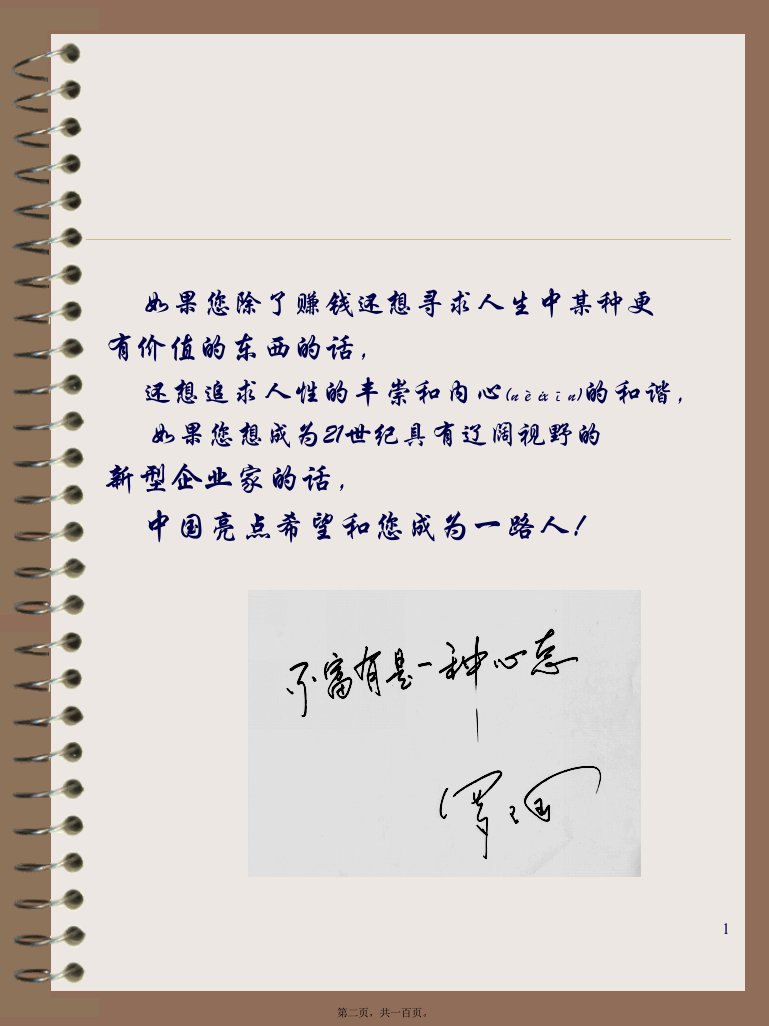 如果您除了赚钱还想寻求人生中某种更
有价值的东西的话，
还想追求人性的丰崇和内心(nèixīn)的和谐，
如果您想成为21世纪具有辽阔视野的
新型企业家的话，
中国亮点希望和您成为一路人！
不富有是一种心态
1
第二页，共一百页。